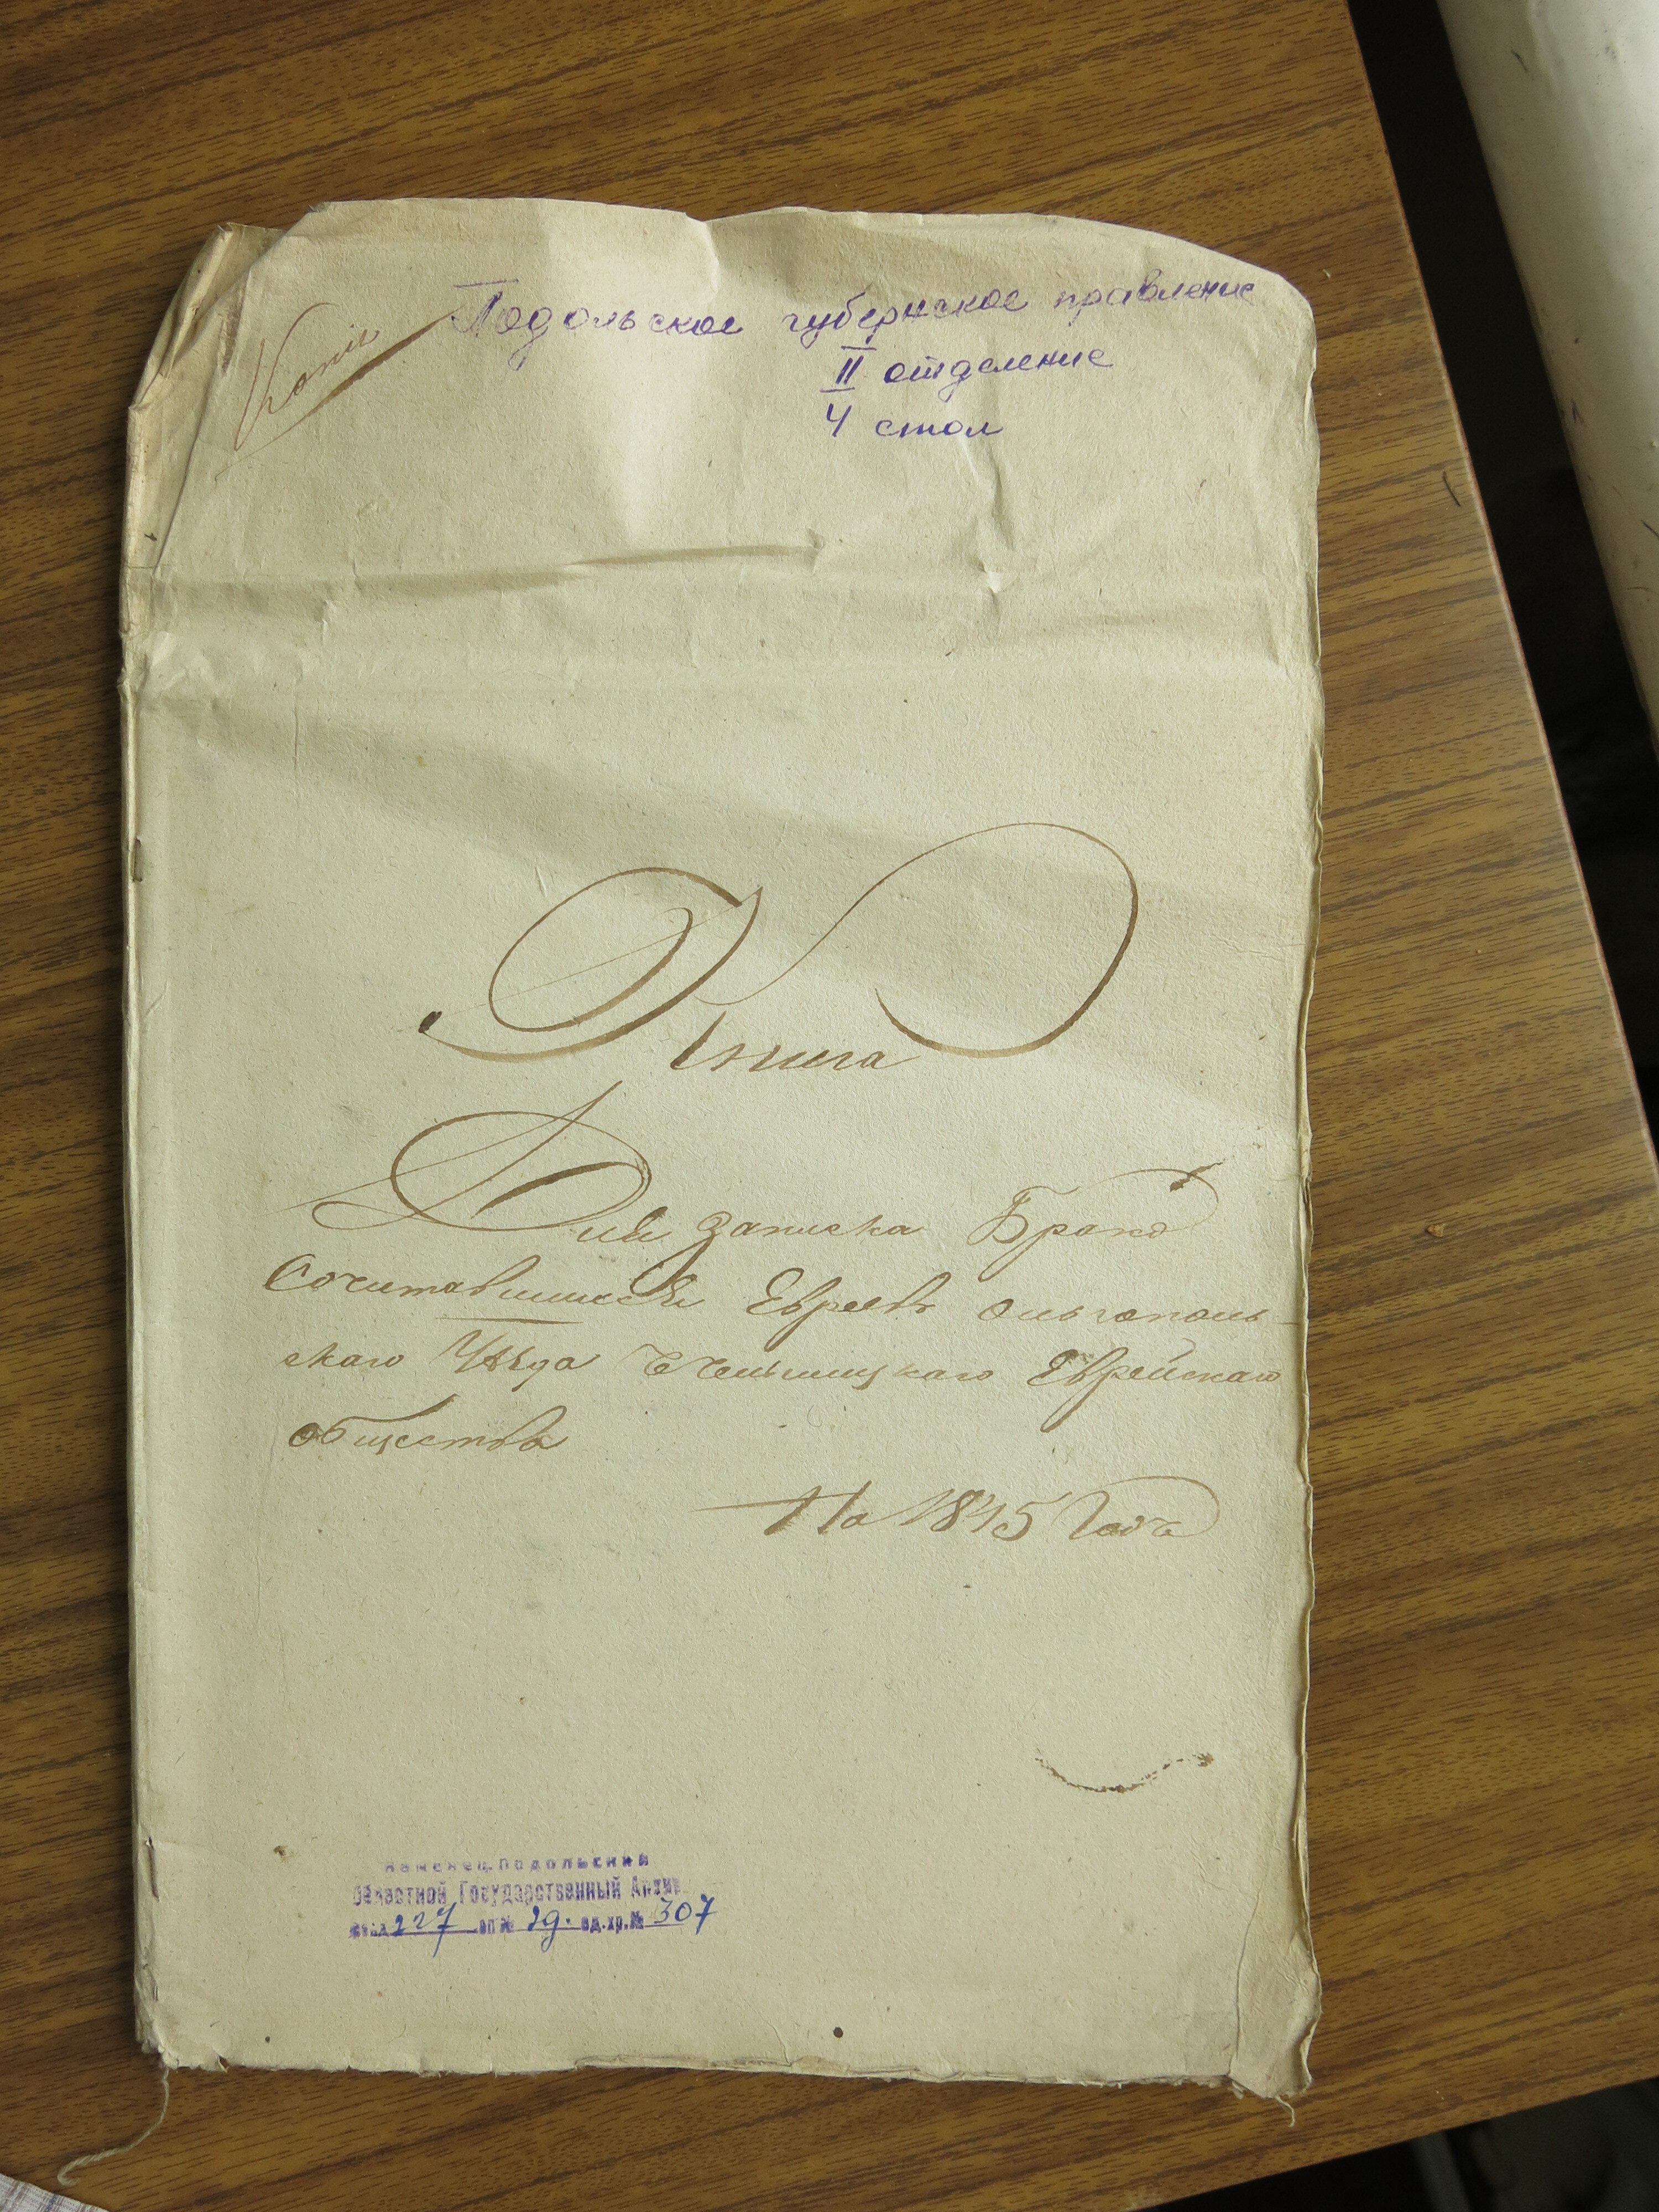 Копія
Подольское губернское правление
II отделение
4 стол
Книга
Для записка Брако
Сочитавшихся Евреевъ Ольгополь-
скаго Уѣзда Чечельницкаго Еврейскаго
общества
На 1845 Годъ
Каменец-Подольский
Областной Государственный Архив
фонд 227 оп № 29. ед.хр.№ 307